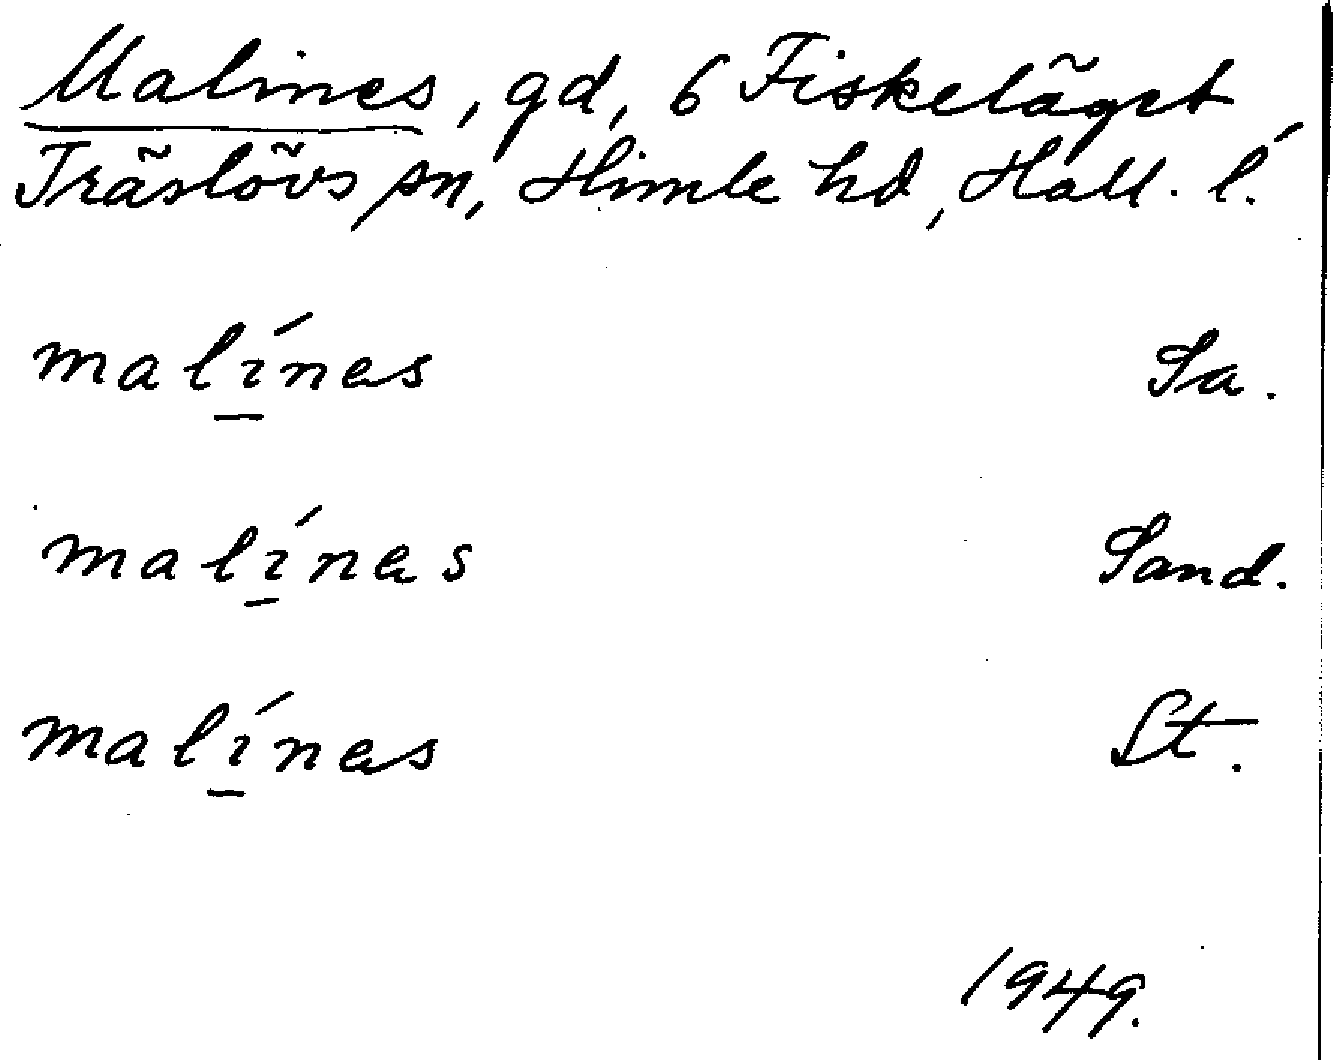 Malines, gd, 6 Fiskeläget
Träslövs sn, Himle hd, Hall. l.
malínəs Sa.
malínəs Sand.
malínəs St.
1949.